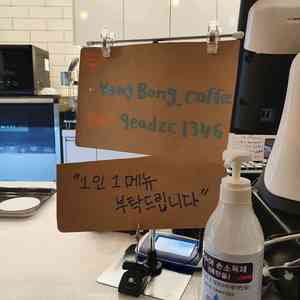 Yang Bong_coffee
geadzc1346
"1인 1메뉴
부탁드립니다"
손소독제